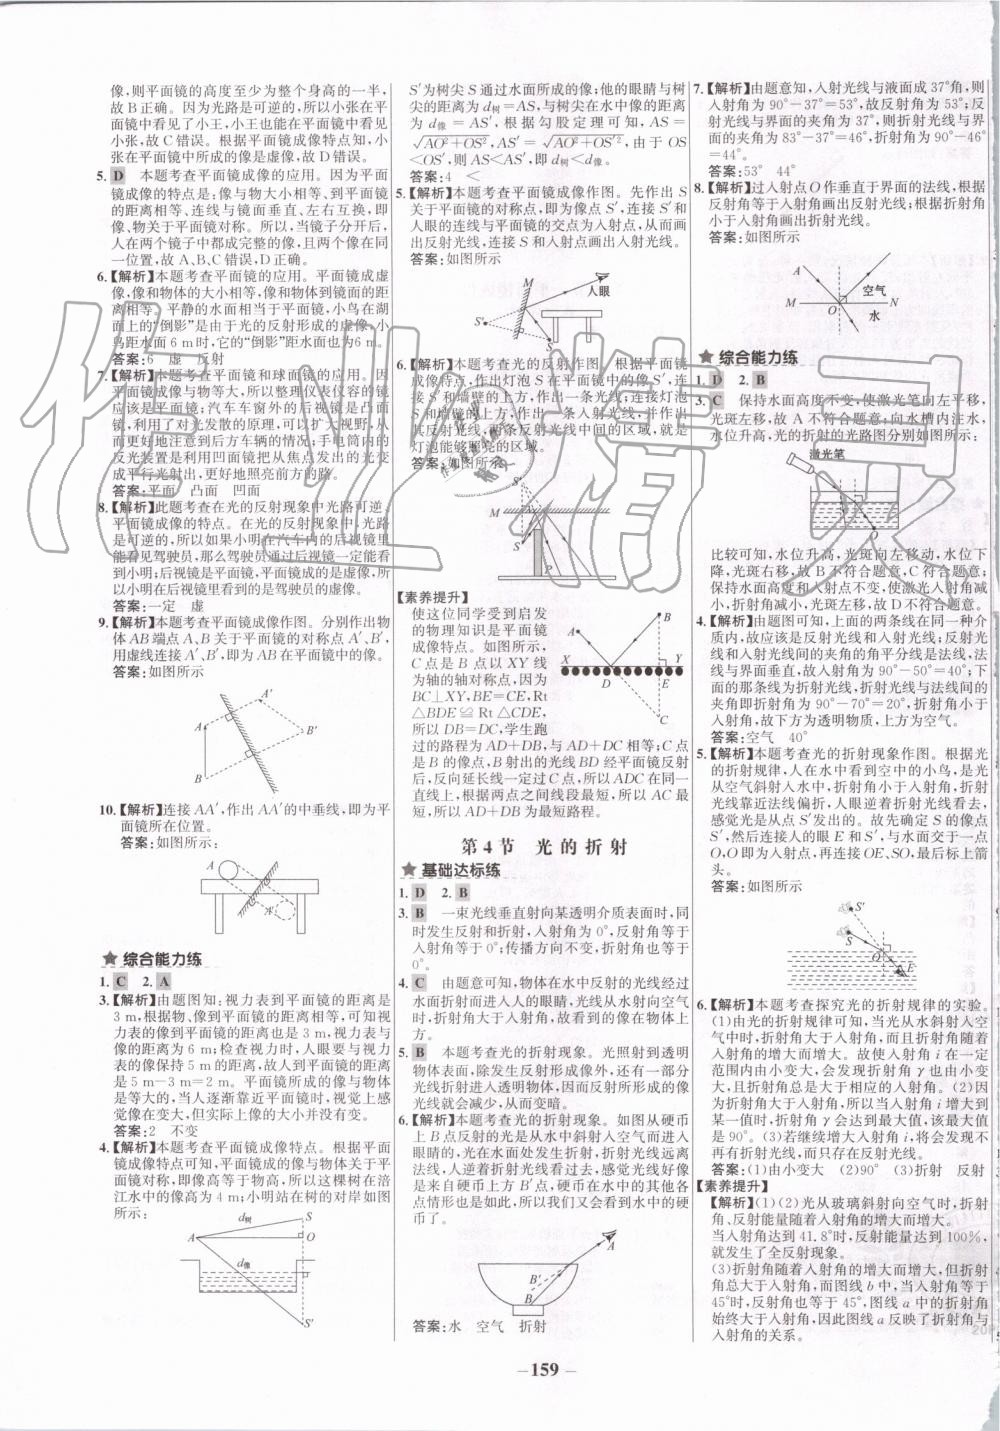 像,则平面镜的高度至少为整个身高的一半,
故B正确。因为光路是可逆的,所以小张在平
面镜中看见了小王,小王也能在平面镜中看到
小张,故C错误。根据平面镜成像特点知,小
张在平面镜中所成的像是虚像,故D错误。
5. D 本题考查平面镜成像的应用。因为平面
镜成像的特点是:像与物大小相等、到平面镜
的距离相等、连线与镜面垂直、左右互换,即
像、物关于平面镜对称。所以,当镜子分开后,
人在两个镜子中都成完整的像,且两个像在同
一位置,故A、B、C错误,D正确。
6.【解析】本题考查平面镜的应用。平面镜成虚
像,像和物体的大小相等,像和物体到镜面的距
离相等。平静的水面相当于平面镜,小鸟在湖
面上的“倒影”是由于光的反射形成的虚像,小
鸟距水面6 m时,它的“倒影”距水面也为6 m。
答案:6 虚 反射
7.【解析】本题考查平面镜和球面镜的应用。因
平面镜成像与物等大,所以整理仪表仪容的镜
应该是平面镜;汽车车窗外的后视镜是凸面
镜,利用了对光发散的原理,可以扩大视野,从
而更好地注意到后方车辆的情况;手电筒内的
反光装置是利用凹面镜把从焦点发出的光变
成平行光射出,更好地照亮前方的路。
答案:平面 凸面 凹面
8.【解析】此题考查在光的反射现象中光路可逆、
平面镜成像的特点。在光的反射现象中,光路
是可逆的,所以如果小明从汽车内的后视镜里
能看见驾驶员,那么驾驶员通过后视镜一定能看
到小明;后视镜是平面镜,平面镜成的是虚像,所
以小明在后视镜里看到的是驾驶员的虚像。
答案:一定 虚
9.【解析】本题考查平面镜成像作图。分别作出物
体AB端点A、B关于平面镜的对称点A′、B′,
用虚线连接A′、B′,即为AB在平面镜中的像。
答案:如图所示
A′
A
B′
B
10.【解析】连接AA′,作出AA′的中垂线,即为平
面镜所在位置。
答案:如图所示:
A
A′
★ 综合能力练
1. C 2. A
3.【解析】由题图知:视力表到平面镜的距离是
3 m,根据物、像到平面镜的距离相等,可知视
力表的像到平面镜的距离也是3 m,视力表与
像的距离为6 m;检查视力时,人眼要与视力
表的像保持5 m的距离,故人到平面镜的距离
是5 m-3 m=2 m。平面镜所成的像与物体
是等大的,当人逐渐靠近平面镜时,视觉上感
觉像在变大,但实际上像的大小并没有变。
答案:2 不变
4.【解析】本题考查平面镜成像特点。根据平面
镜成像特点可知,平面镜的成像与物体关于平
面镜对称,即像高等于物高,所以这棵树在涪
江水中的像高为4 m;小明站在树的对岸如图
所示:
S
d树
A
O
d像
S′
S′为树尖S通过水面所成的像;他的眼睛与树
尖的距离为d树=AS,与树尖在水中像的距离
为d像=AS′,根据勾股定理可知,AS=
√AO²+OS²,AS′=√AO²+OS′²,由于OS
<OS′,则AS<AS′,即d树<d像。
答案:4 <
5.【解析】本题考查平面镜成像作图。先作出S
关于平面镜的对称点,即为像点S′,连接S′和
人眼的连线与平面镜的交点为入射点,从而画
出反射光线,连接S和入射点画出入射光线。
答案:如图所示
M
人眼
S′
S
6.【解析】本题考查光的反射作图。根据平面镜
成像特点,作出灯泡S在平面镜中的像S′,连
接S和墙壁的上方,作出一条光线;连接灯泡
S和墙壁的上方,作出一条入射光线,并作出
其反射光线,两条反射光线中间的区域,就是
灯泡能够照亮的区域。
答案:如图所示
S′
M
S
P
【素养提升】
使这位同学受到启发
的物理知识是平面镜
成像特点。如图所示,
C点是B点以XY线
为轴的轴对称点,因为
BC⊥XY,BE=CE,Rt
△BDE≌Rt△CDE,
所以DB=DC,学生跑
过的路程为AD+DB,与AD+DC相等;C点
是B的像点,B射出的光线BD经平面镜反射
后,反向延长线一定过C点,所以ADC在同一
直线上,根据两点之间线段最短,所以AC最
短,所以AD+DB为最短路程。
B
A
X
Y
D
E
C
第4节 光的折射
★ 基础达标练
1. D 2. B
3. B 一束光线垂直射向某透明介质表面时,同
时发生反射和折射,入射角为0°,反射角等于
入射角等于0°;传播方向不变,折射角等于0°。
4. C 由题意可知,物体在水中反射的光线经过
水面折射而进入人的眼睛,光线从水射向空气
时,折射角大于入射角,故看到的像在物体上
方。
5. B 本题考查光的折射现象。光照射到透明
物体表面,除发生反射形成像外,还有一部分
光线折射进入透明物体,因而反射所形成的像
光线就会减少,从而变暗。
6.【解析】本题考查光的折射现象。如图从硬币
上B点反射的光是从水中斜射入空气而进入
眼睛的,光在水面处发生折射,折射光线远离
法线,人逆着折射光线看过去,感觉光线好像
是来自硬币上方B′点,硬币在水中的其他各
点情形也是如此,所以我们又会看到水中的硬
币了。
A
B′
B
答案:水 空气 折射
7.【解析】由题意知,入射光线与液面成37°角,则
入射角为90°-37°=53°,故反射角为53°;反
射光线与界面的夹角为37°,则折射光线与界
面的夹角为83°-37°=46°,折射角为90°-46°
=44°。
答案:53° 44°
8.【解析】过入射点O作垂直于界面的法线,根据
反射角等于入射角画出反射光线;根据折射角
小于入射角画出折射光线。
答案:如图所示
A
空气
M
O
N
水
★ 综合能力练
1. D 2. B
3. C 保持水面高度不变,使激光笔向左平移,
光斑左移,故A不符合题意;向水槽内注水,
水位升高,光的折射的光路图分别如图所示:
激光笔
O
比较可知,水位升高,光斑向左移动,水位下
降,光斑右移,故B不符合题意,C符合题意;
保持水面高度和入射点不变,使激光入射角减
小,折射角减小,光斑左移,故D不符合题意。
4.【解析】由题图可知,上面的两条线在同一种介
质内,故应该是反射光线和入射光线;反射光线
和入射光线间的夹角的角平分线是法线,法线与
界面垂直,故入射角为90°-50°=40°;下
面的那条线为折射光线,折射光线与法线间的
夹角即折射角为90°-70°=20°,折射角小于
入射角,故下方为透明物质,上方为空气。
答案:空气 40°
5.【解析】本题考查光的折射现象作图。根据光
的折射规律,人在水中看到空中的小鸟,是光
从空气斜射入水中,折射角小于入射角,折射
光线靠近法线偏折,人眼逆着折射光线看去,
感觉光是从点S′发出的。故先确定S的像点
S′,然后连接人的眼E和S′,与水面交于一点
O,O即为入射点,再连接OE、SO,最后标上箭
头。
答案:如图所示
S′
S
O
E
6.【解析】本题考查探究光的折射规律的实验。
(1)由光的折射规律可知,当光从水斜射入空
气中时,折射角大于入射角,而且折射角随着
入射角的增大而增大。故使入射角i在一定
范围内由小变大,会发现折射角γ也由小变
大,且折射角总是大于相应的入射角。(2)因
为折射角大于入射角,所以当入射角i增大到
某一值时,折射角γ会达到最大值,该最大值
是90°。(3)若继续增大入射角i,将会发现不
再有折射光线,而只存在反射光线。
答案:(1)由小变大 (2)90° (3)折射 反射
【素养提升】
【解析】(1)(2)光从玻璃斜射向空气时,折射
角、反射能量随着入射角的增大而增大。
当入射角达到41.8°时,反射能量达到100%,
就发生了全反射现象。
(3)折射角随着入射角的增大而增大,但折射
角总大于入射角,而图线b中,当入射角等于
45°时,反射角也等于45°,图线a中的折射角
始终大于入射角,因此图线a反映了折射角与
入射角的关系。
- 159 -
作业精灵